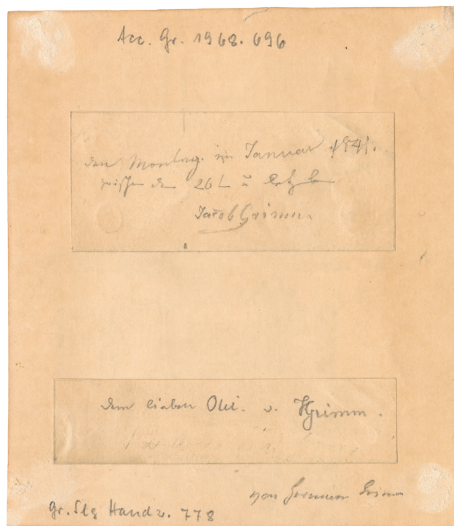 Acc. Gr. 1968.696
den Montag im Januar 1841.
zwischen dem 26t u
Jacob Grimm.
dem lieben Ohl. v. HGrimm.
von Herman Grimm
Gr. Slg Handz. 778